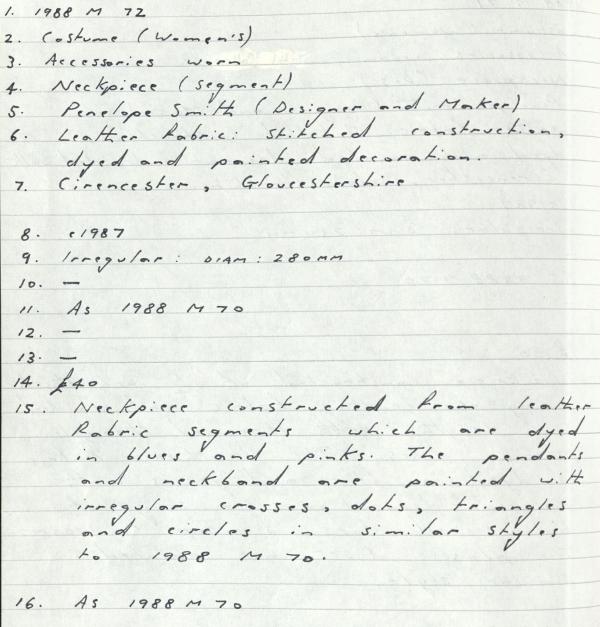 1. 1988 M 72
2. Costume (Women's)
3. Accessories worn
4. Neckpiece (segment)
5. Penelope Smith (Designer and Maker)
6. Leather Fabric: Stitched construction,
dyed and painted decoration.
7. Cirencester, Gloucestershire
8. c1987
9. Irregular: DIAM: 280MM
10. —
11. As 1988 M 70
12. —
13. —
14. £40
15. Neckpiece constructed from leather
fabric segments which are dyed
in blues and pinks. The pendants
and neckband are painted with
irregular crosses, dots, triangles
and circles in similar styles
to 1988 M 70.
16. As 1988 M 70